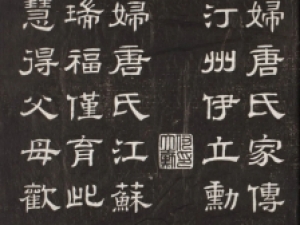 婦唐氏家傳
汀州伊立勳
婦唐氏江蘇
瑞福僅育此
慧得父母歡